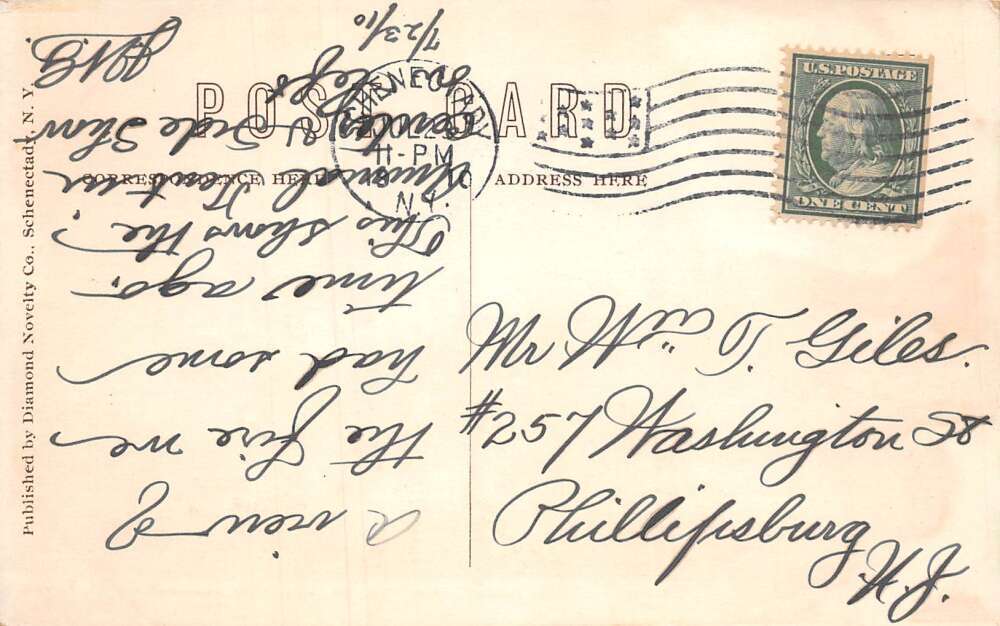 POST CARD
CORRESPONDENCE HERE
ADDRESS HERE
SCHENECTADY
11-PM
N.Y.
U.S. POSTAGE
ONE CENT
Mr Will T. Giles.
#257 Washington St
Phillipsburg
N.J.
a view of
the fire we
had some
time ago.
This shows the
Side Show
7/23/10
Published by Diamond Novelty Co., Schenectady, N. Y.